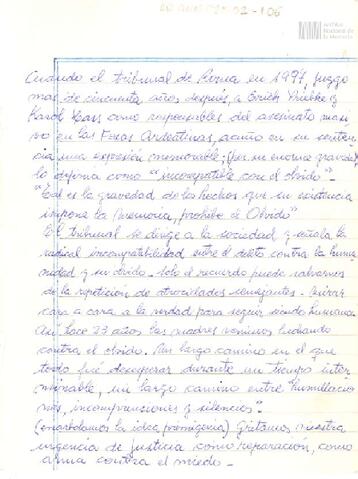 Archivo
Nacional de
la Memoria
Cuando el tribunal de Roma en 1997, juzgó
mas de cincuenta años después, a Erich Priebke y
Karol Hass como responsables del asesinato masi
vo en las Fosas Ardeatinas, acuñó en su senten
cia una expresión memorable; (por su enorme gravedad)
lo definía como "incompatible con el olvido"
"Tal es la gravedad de los hechos que su existencia
impone la Memoria, prohibe el Olvido"
El tribunal se dirige a la sociedad y señala la
radical incompatibilidad entre el delito contra la huma
nidad y su olvido. Solo el recuerdo puede salvarnos
de la repetición de atrocidades semejantes. Mirar
cara a cara a la verdad para seguir siendo humanos.
Así hace 23 años las madres venimos luchando
contra el olvido. Un largo camino en el que
todo fué desesperar durante un tiempo inter
minable, un largo camino entre "humillacio
nes, incomprensiones y silencios".
(enarbolamos la idea primigenia) Gritamos nuestra
urgencia de justicia como reparación, como
arma contra el miedo.